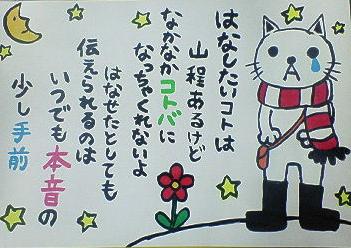 はなしたいコトは
山程あるけど
なかなかコトバに
なっちゃくれないよ
はなせたとしても
伝えられるのは
いつでも本音の
少し手前